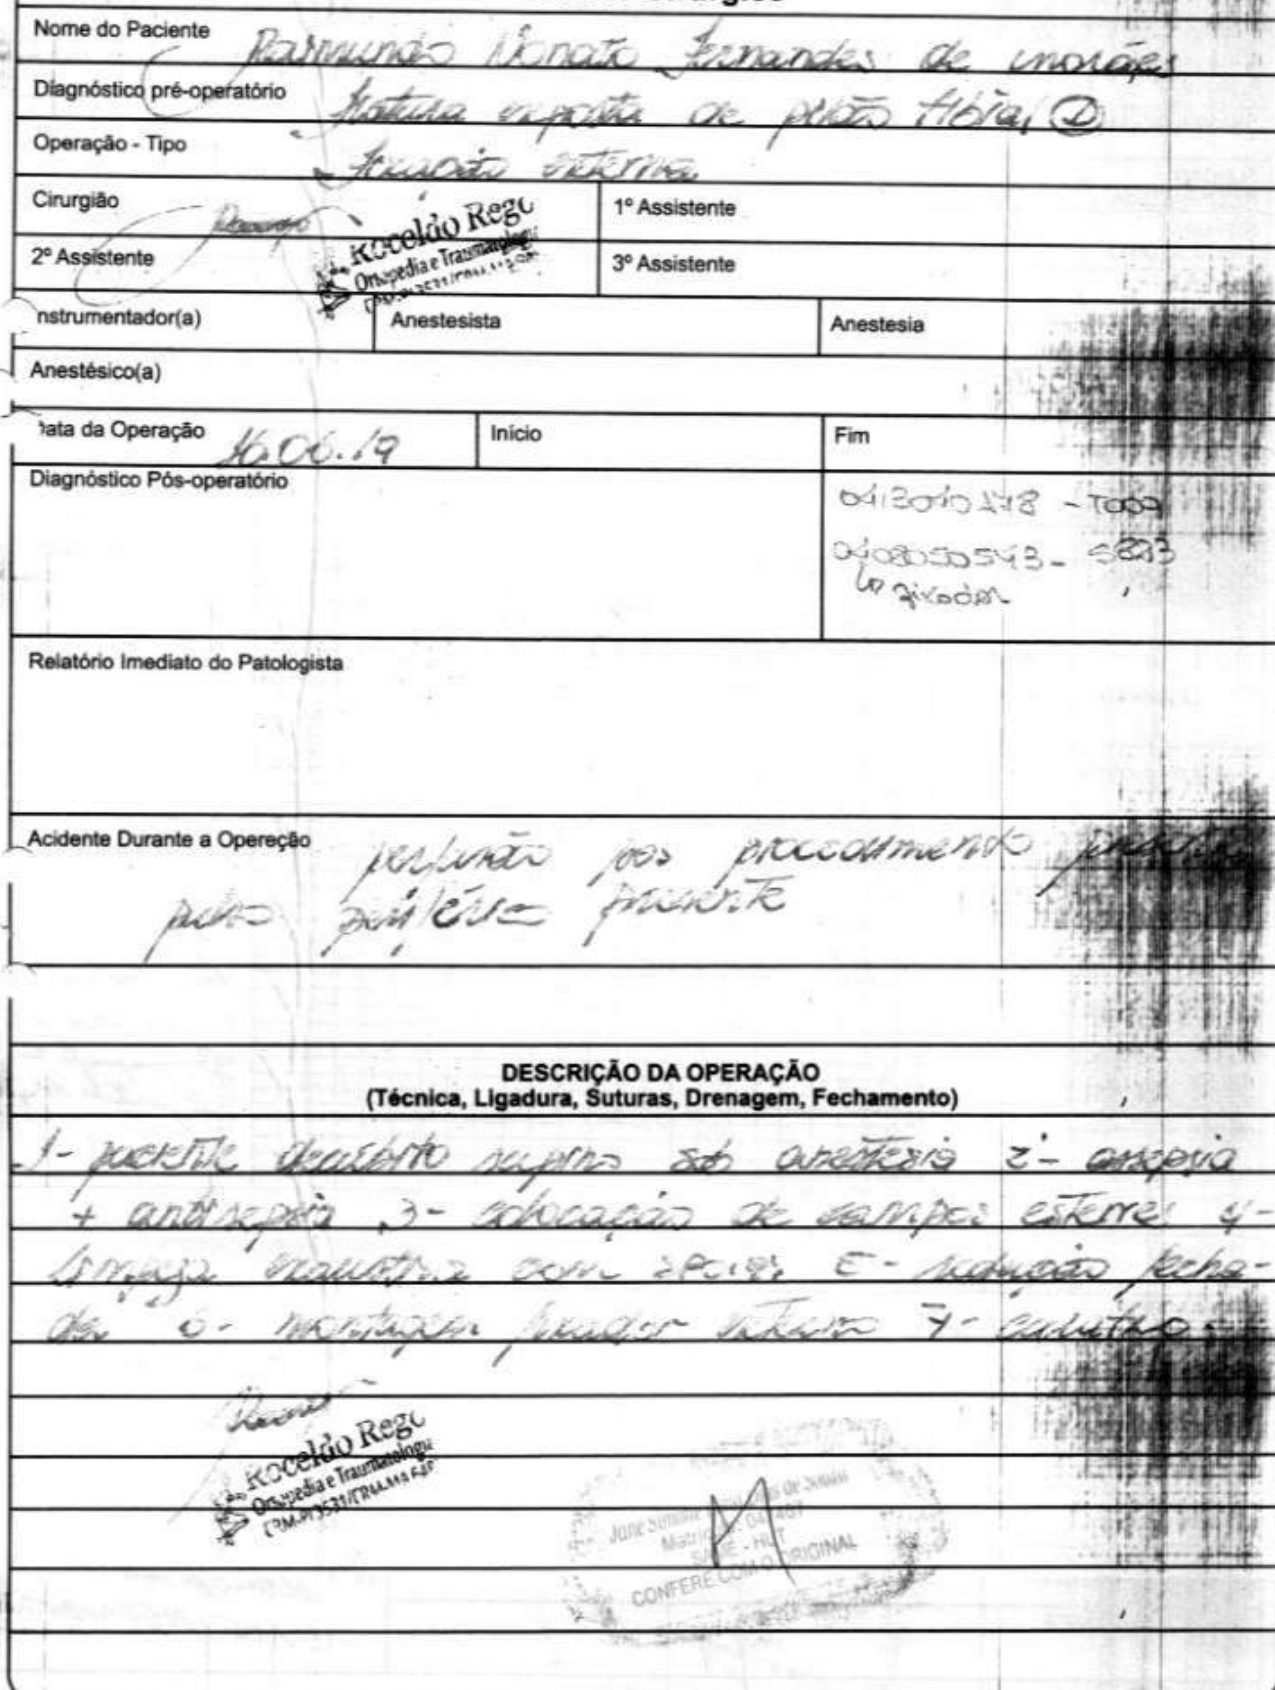 Nome do Paciente Raimundo Nonato Fernandes de Moraes
Diagnóstico pré-operatório Fratura exposta de pilão tibial D
Operação - Tipo Fixação externa
Cirurgião
1º Assistente
Roceldo Rego
Ortopedia e Traumatologia
2º Assistente
3º Assistente
nstrumentador(a)
Anestesista
Anestesia
Anestésico(a)
ata da Operação 16.06.19
Início
Fim
Diagnóstico Pós-operatório
- T009
0408050543 - S823
fixador
Relatório Imediato do Patologista
Acidente Durante a Opereção perfusão pos procedimento
pulso periférico presente
DESCRIÇÃO DA OPERAÇÃO
(Técnica, Ligadura, Suturas, Drenagem, Fechamento)
1- paciente decúbito supino sob anestesia 2- assepsia
+ antissepsia 3- colocação de campos estereis 4-
limpeza exaustiva com 5- redução fecha-
da 6- montagem fixador externo 7- curativo
Roceldo Rego
Ortopedia e Traumatologia
Jane de Sousa
CONFERE COM O ORIGINAL